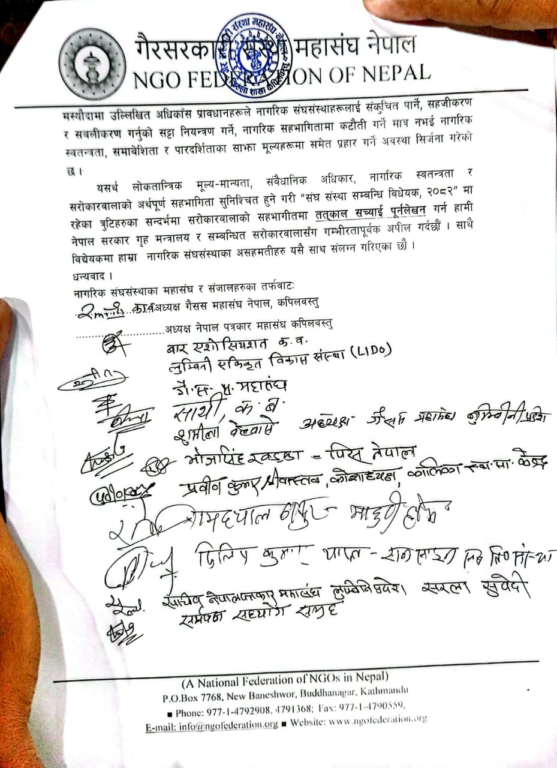 गैरसरकारी संस्था महासंघ नेपाल
NGO FEDERATION OF NEPAL
मस्यौदामा उल्लिखित अधिकांस प्रावधानहरूले नागरिक संघसंस्थाहरूलाई संकुचित पार्ने, सहजीकरण
र सबलीकरण गर्नुको सट्टा नियन्त्रण गर्ने, नागरिक सहभागितामा कटौती गर्ने मात्र नभई नागरिक
स्वतन्त्रता, समावेशिता र पारदर्शिताका साभा मूल्यहरूमा समेत प्रहार गर्ने अवस्था सिर्जना गरेको
छ ।
यसर्थ लोकतान्त्रिक मूल्य-मान्यता, संवैधानिक अधिकार, नागरिक स्वतन्त्रता र
सरोकारवालाको अर्थपूर्ण सहभागिता सुनिश्चित हुने गरी "संघ संस्था सम्बन्धि विधेयक, २०८२" मा
रहेका त्रुटिहरुका सन्दर्भमा सरोकारवालाको सहभागीतमा तत्काल सच्याई पूर्नलेखन गर्न हामी
नेपाल सरकार गृह मन्त्रालय र सम्बन्धित सरोकारवालासँग गम्भीरतापूर्वक अपील गर्दछौं । साथै
विधेयकमा हाम्रा नागरिक संघसंस्थाका असहमतीहरु यसै साथ संलग्न गरिएका छौ ।
धन्यवाद ।
नागरिक संघसंस्थाका महासंघ र संजालहरुका तर्फबाट:
का.वा.अध्यक्ष गैसस महासंघ नेपाल, कपिलवस्तु
अध्यक्ष नेपाल पत्रकार महासंघ कपिलवस्तु
बार एशोसियशन क.व.
लुम्बिनी एकिकृत विकास संस्था (LIDO)
महासंघ
साथी, क.ब.
अध्यक्ष गैसस महासंघ लुम्बिनी प्रदेश
नेपाल
प्रवीन कुमार श्रीवास्तव, कोषाध्यक्ष,
दिलिप कुमार
सचिव नेपाल पत्रकार महासंघ लुम्बिनी प्रदेश। सरला सुवेदी
समूह
(A National Federation of NGOs in Nepal)
P.O.Box 7768, New Baneshwor, Buddhanagar, Kathmandu
■ Phone: 977-1-4792908, 4791368; Fax: 977-1-4790559,
E-mail: info@ngofederation.org ■ Website: www.ngofederation.org